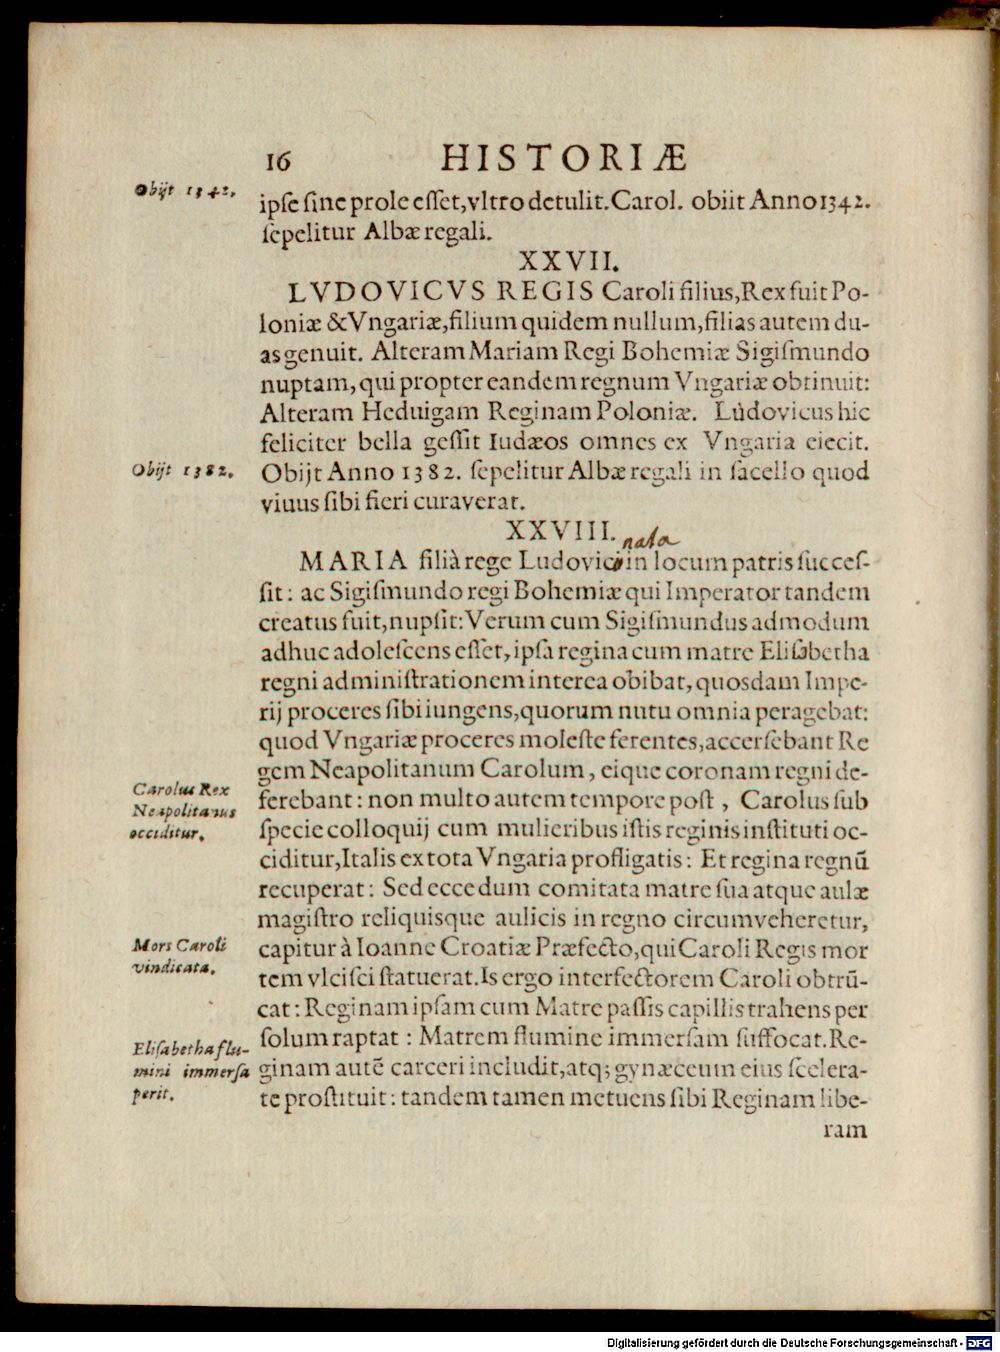 16 HISTORIÆ
Obijt 1342.
ipſe ſine prole eſſet, vltro detulit. Carol. obiit Anno 1342.
ſepelitur Albæ regali.
XXVII.
LVDOVICVS REGIS Caroli filius, Rex fuit Po-
loniæ & Vngariæ, filium quidem nullum, filias autem du-
as genuit. Alteram Mariam Regi Bohemiæ Sigiſmundo
nuptam, qui propter eandem regnum Vngariæ obtinuit:
Alteram Heduigam Reginam Poloniæ. Lùdovicus hic
feliciter bella geſſit Iudæos omnes ex Vngaria eiecit.
Obijt 1382.
Obijt Anno 1382. ſepelitur Albæ regali in ſacello quod
viuus ſibi fieri curaverat.
XXVIII.
nata
MARIA filià rege Ludovici in locum patris ſucceſ-
ſit: ac Sigiſmundo regi Bohemiæ qui Imperator tandem
creatus fuit, nupſit: Verum cum Sigiſmundus admodum
adhuc adoleſcens eſſet, ipſa regina cum matre Eliſabetha
regni adminiſtrationem interea obibat, quosdam Impe-
rij proceres ſibi iungens, quorum nutu omnia peragebat:
quod Vngariæ proceres moleſte ferentes, accerſebant Re
gem Neapolitanum Carolum, eique coronam regni de-
Carolus Rex
Neapolitanus
occiditur.
ferebant: non multo autem tempore poſt, Carolus ſub
ſpecie colloquij cum mulieribus iſtis reginis inſtituti oc-
ciditur, Italis ex tota Vngaria profligatis: Et regina regnũ
recuperat: Sed ecce dum comitata matre ſua atque aulæ
magiſtro reliquisque aulicis in regno circumveheretur,
Mors Caroli
vindicata.
capitur à Ioanne Croatiæ Præfecto, qui Caroli Regis mor
tem vlciſci ſtatuerat. Is ergo interfectorem Caroli obtrũ-
cat: Reginam ipſam cum Matre paſſis capillis trahens per
Eliſabetha flu-
mini immerſa
perit.
ſolum raptat: Matrem flumine immerſam ſuffocat. Re-
ginam autẽ carceri includit, atq; gynæceum eius ſcelera-
te proſtituit: tandem tamen metuens ſibi Reginam libe-
ram
Digitalisierung gefördert durch die Deutsche Forschungsgemeinschaft - DFG